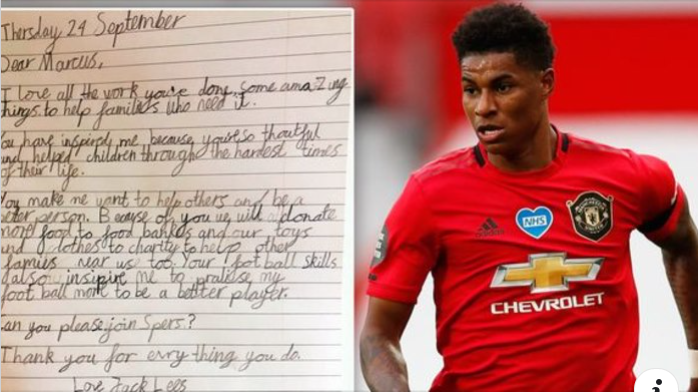 Thersday 24 September
Dear Marcus,
I love all the work you've done, some amaZing
things to help families who need it.
You have inspired me because you're so thoutful
and helped children through the hardest times
of their life.
You make me want to help others and be a
better person. Because of you we will donate
more food to food banks and our toys
and clothes to charity to help other
families near us too. Your foot ball skills
also insipire me to pratise my
foot ball more to be a better player.
Can you please join Spers?
Thank you for erry thing you do.
Love Jack Lees
adidas
NHS
MANCHESTER
UNITED
CHEVROLET
i